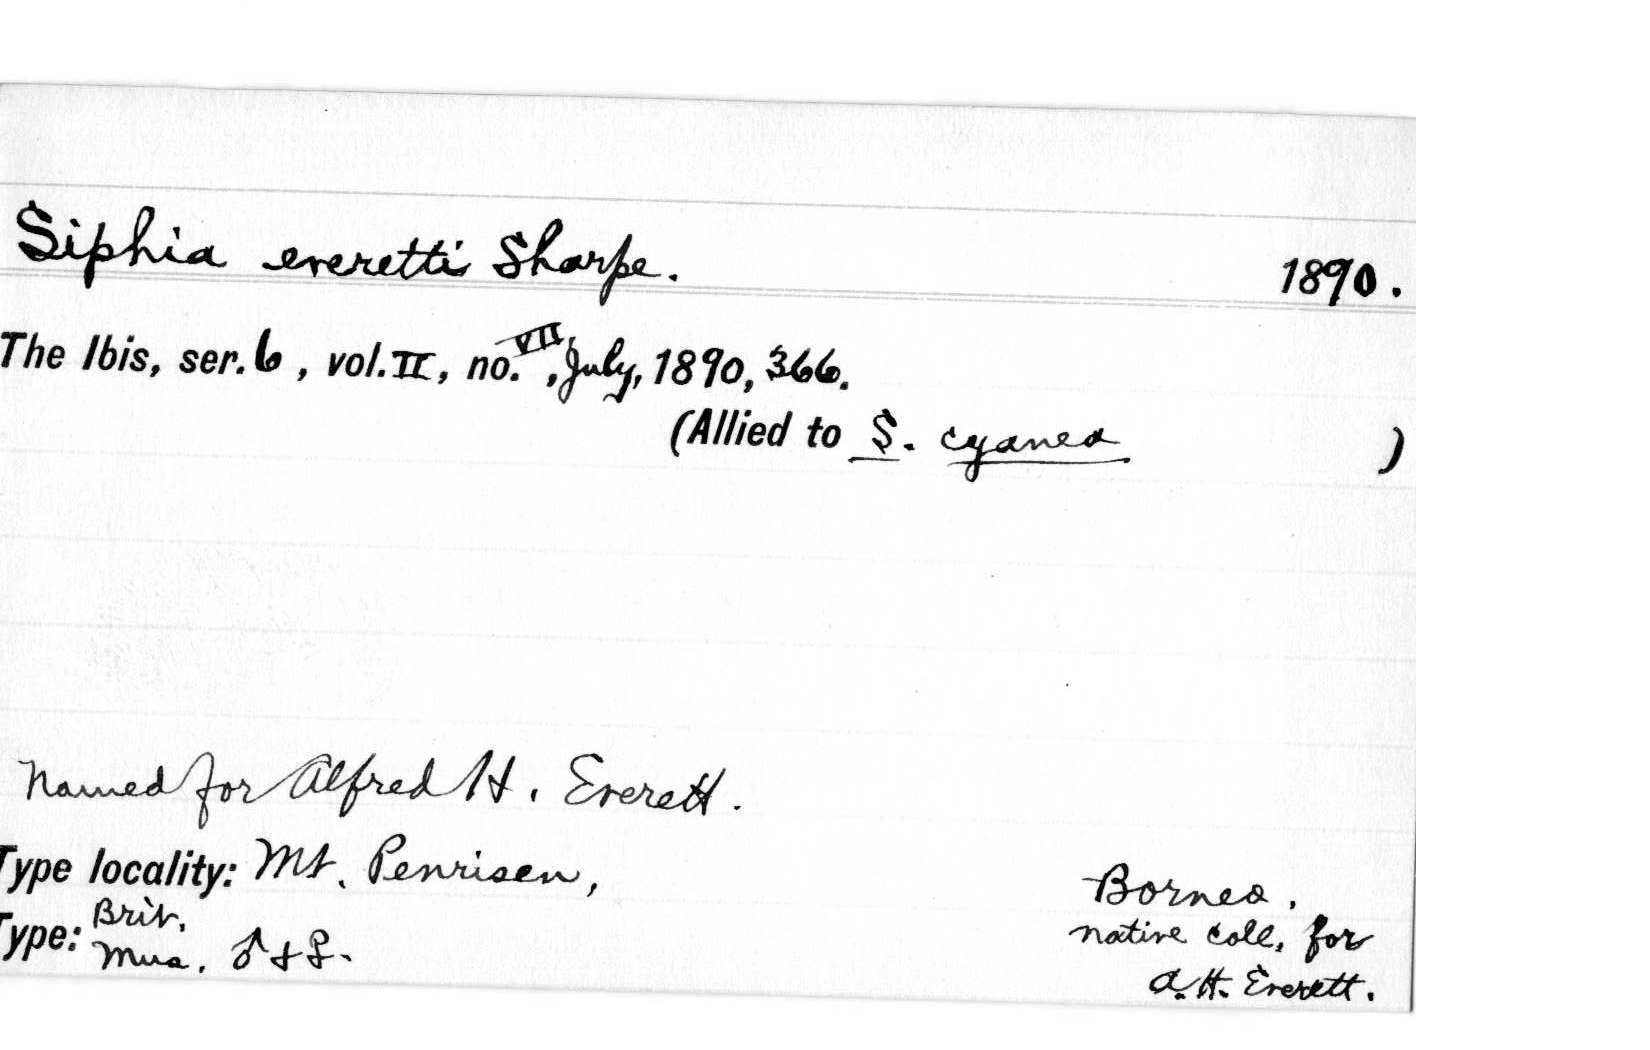 Siphia everetti Sharpe. 1890.
The Ibis, ser. 6, vol. II, no. VII, July, 1890, 366.
(Allied to S. cyanea )
Named for Alfred H. Everett.
Type locality: Mt. Penrisen, Borneo.
Type: Brit. Mus. ♂ & ♀. native coll, for
A. H. Everett.